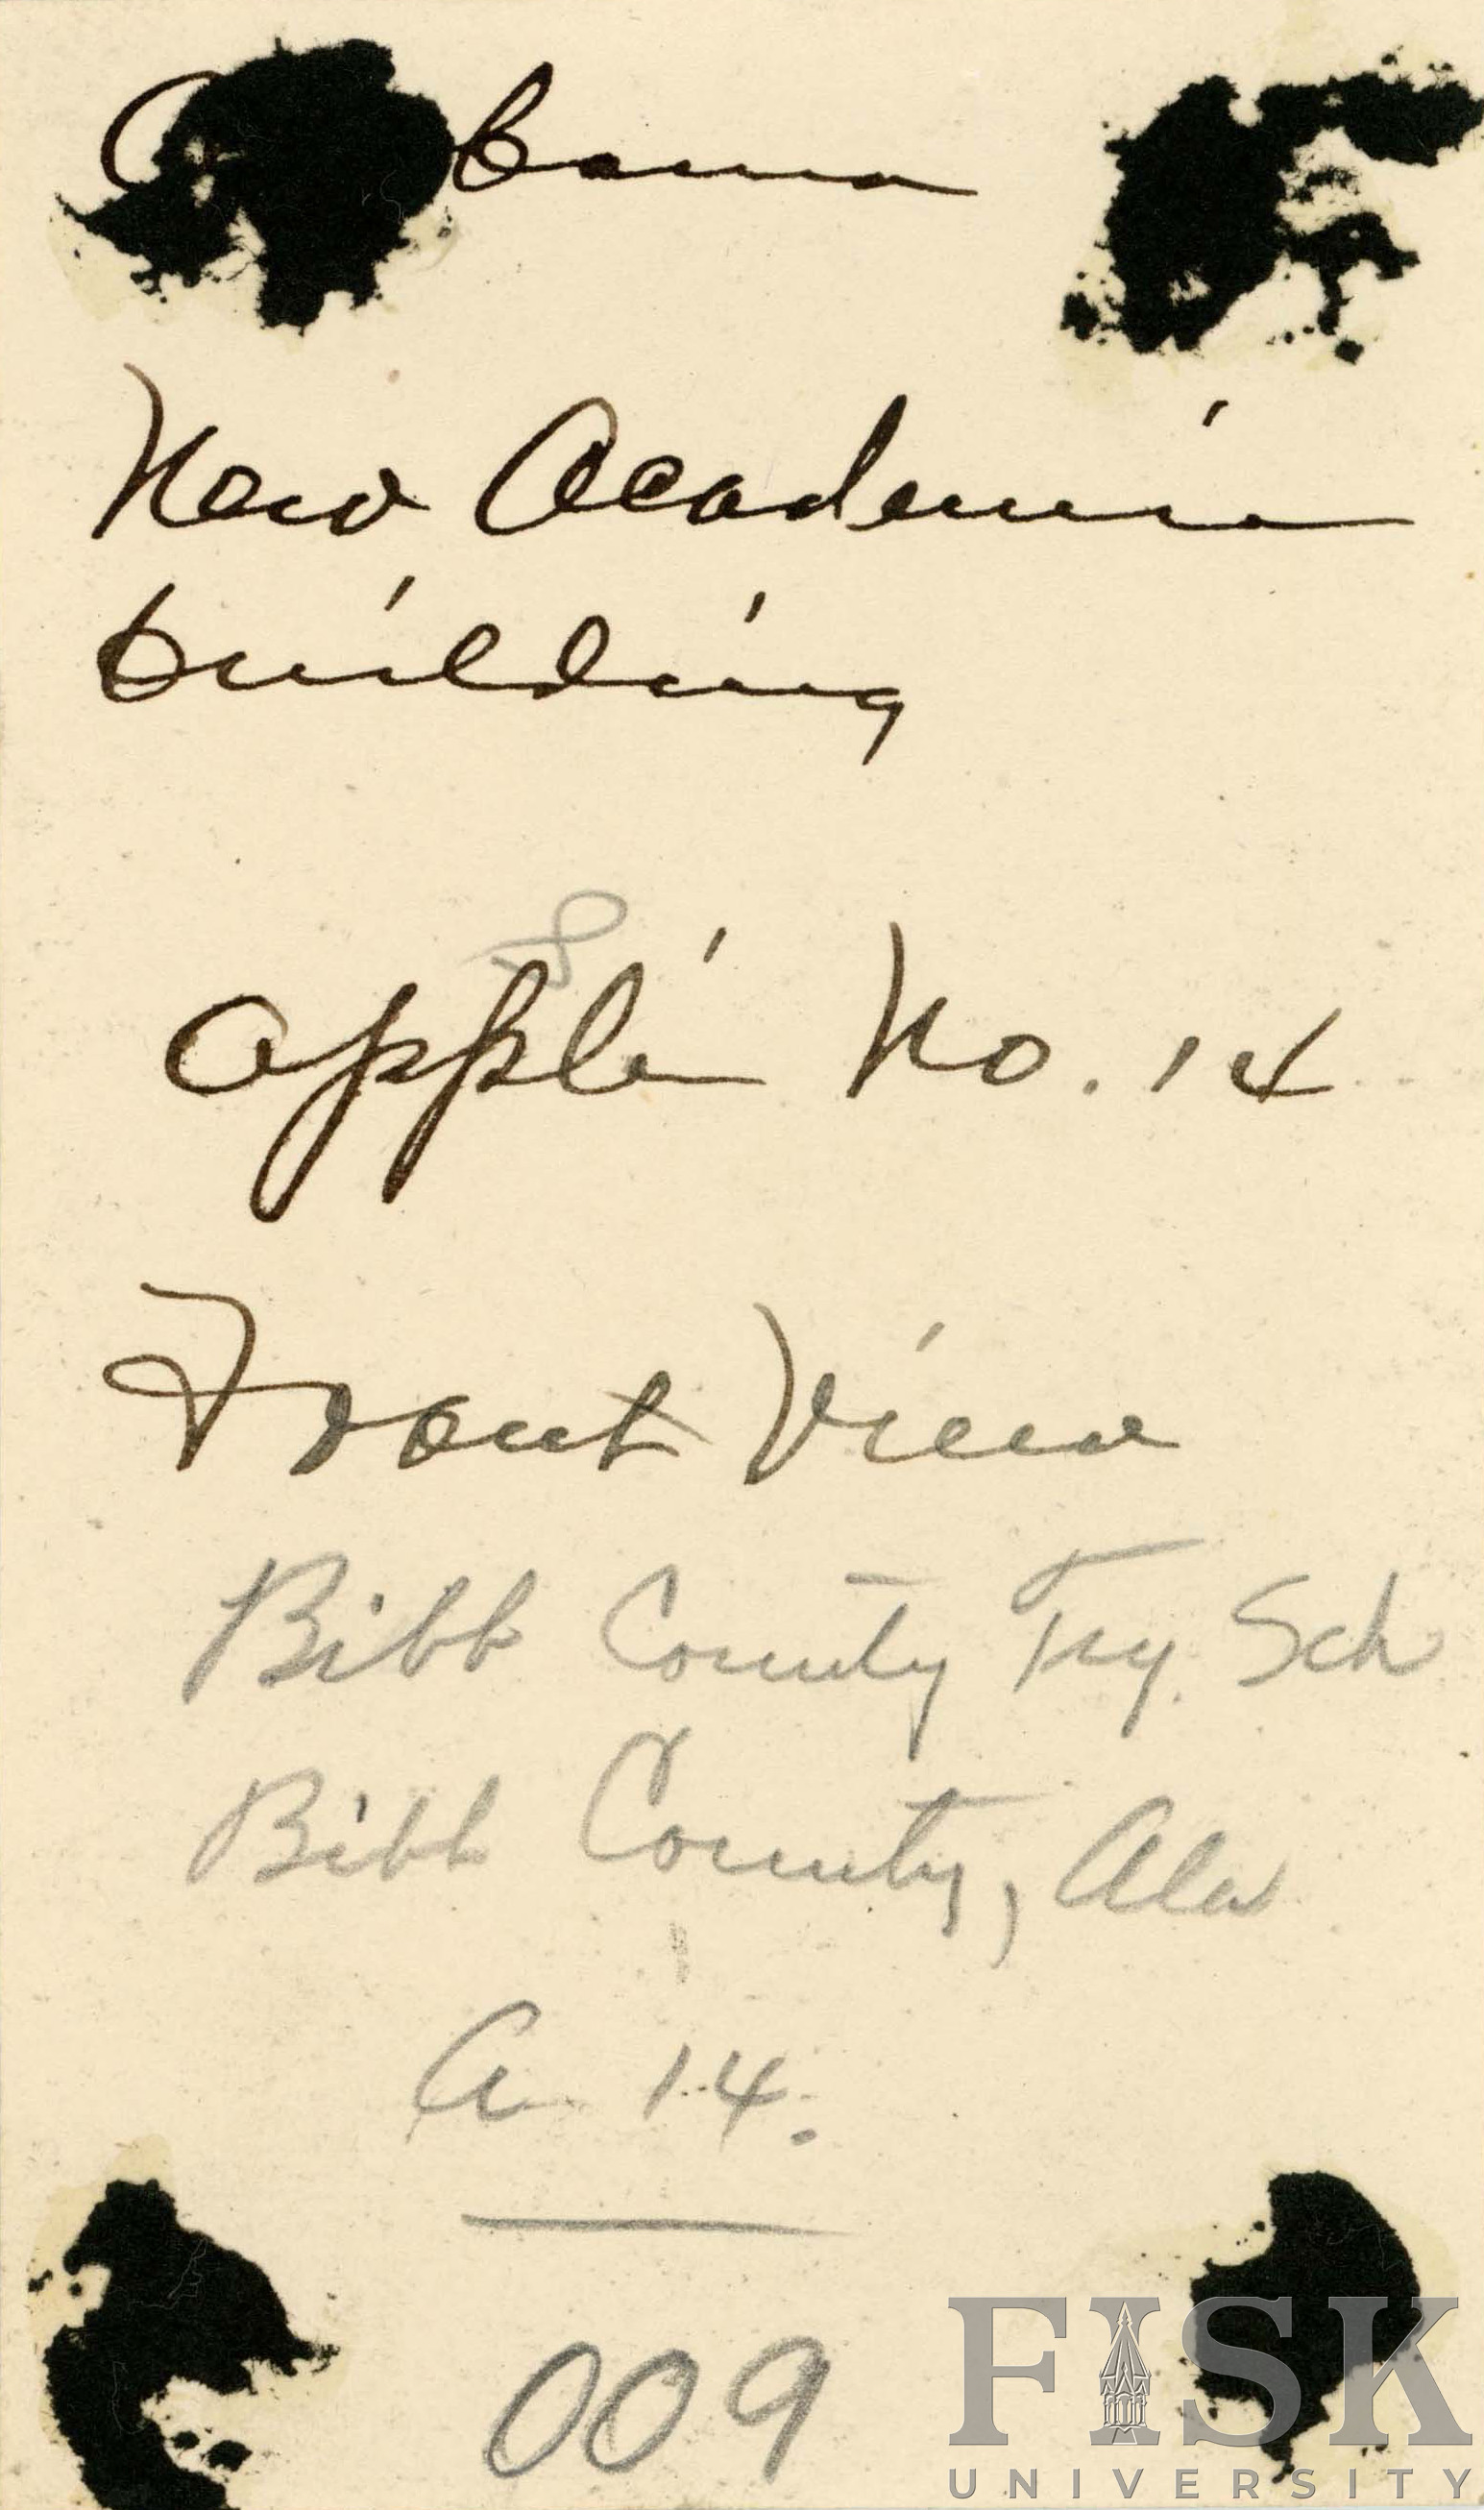 New Academic
building
Appli No. 14
Front View
Bibb County Trg. Sch
Bibb County, Ala
A 14.
009
FISK
UNIVERSITY